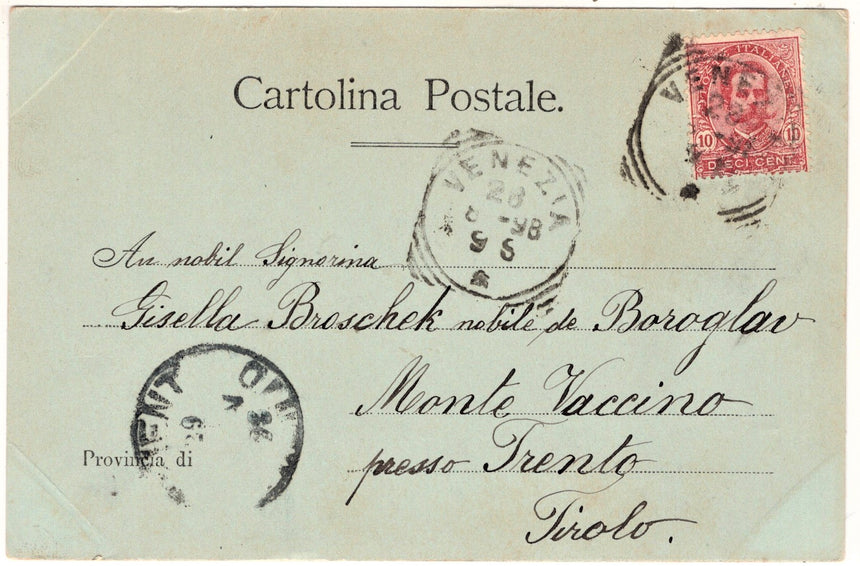 Cartolina Postale.
POSTE ITALIANE
10 10
DIECI CENT.
VENEZIA
VENEZIA
28
8 -98
9 S
An nobil Signorina
Gisella Broschek nobile de Boroglav
Monte Vaccino
Provincia di
presso Trento
Tirolo.